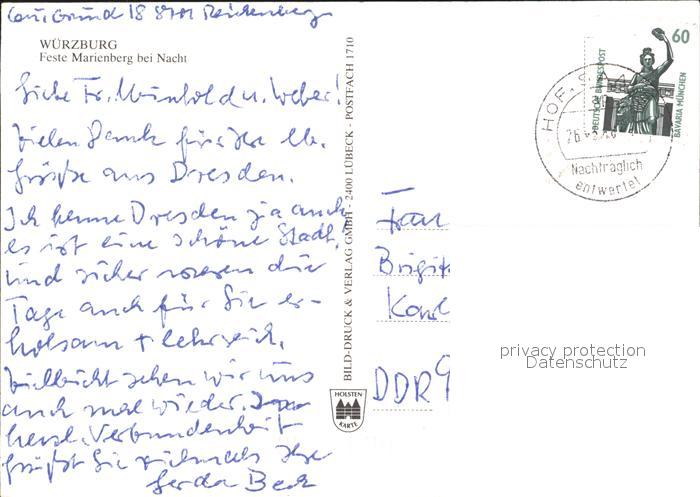 Grund 18 8701 Reichenberg
WÜRZBURG
Feste Marienberg bei Nacht
Liebe Fr. Meinhold u. Weber!
Vielen Dank für Ihre lb.
Grüße aus Dresden.
Ich kenne Dresden ja auch
es ist eine schöne Stadt.
Und sicher waren die
Tage auch für Sie er-
holsam + lehrreich.
Vielleicht sehen wir uns
auch mal wieder. In
herzl. Verbundenheit
grüßt Sie vielmals Ihre
Gerda Beck
BILD-DRUCK & VERLAG GMBH · 2400 LÜBECK · POSTFACH 1710
HOLSTEN
KARTE
60
DEUTSCHE BUNDESPOST
BAVARIA MÜNCHEN
HOF
Nachträglich
entwertet
Frau
Brigit
Karl
DDR 9
privacy protection
Datenschutz